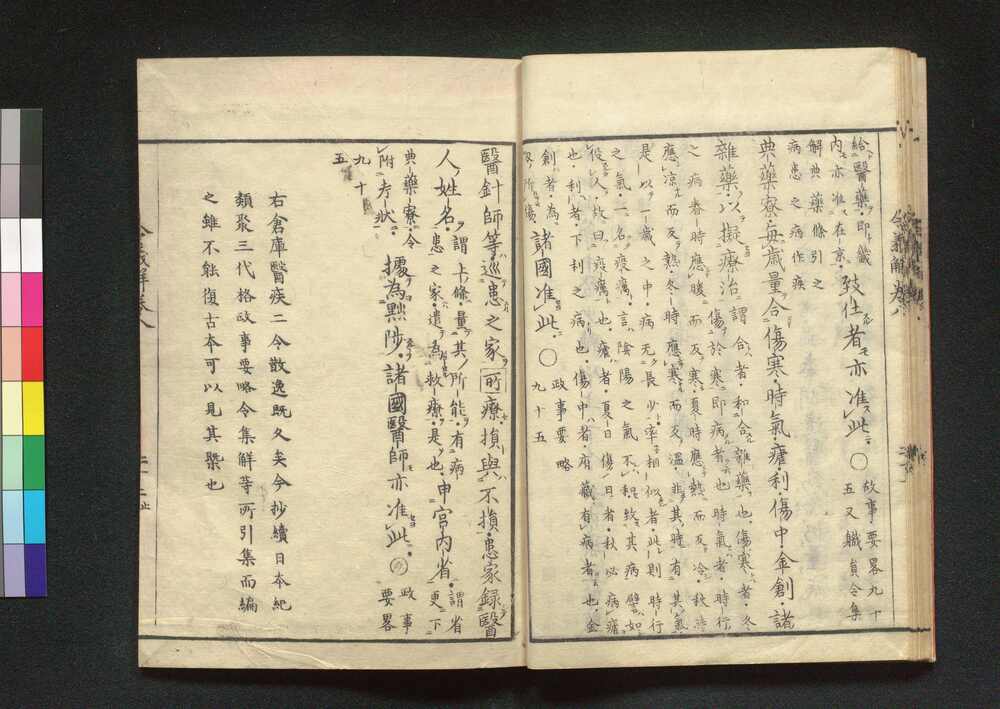 給醫藥即職
内亦准在京
致仕者亦准此〇
故事要畧九十
五又職員令集
解典藥條引之
病患之病作疾
典藥寮毎歳量合傷寒時氣瘧利傷中金創諸
雜藥以擬療治
謂合者和合雜藥也傷寒者冬
傷於寒即病者也時氣者時行
之病春時應暖而反寒夏時應熱而反冷秋時
應涼而反熱冬時應寒而反溫非其時有其氣
是以一歳之中病无長少率相似者此則時行
之氣一名疫癘言陰陽之氣不和致其病譬如
役人故曰疫癘也瘧者夏日傷日者秋必病瘧
也利者下利之病也傷中者府藏有病者也金
創者為
所傷
諸國准此〇
政事要略
九十五
醫針師等巡患之家所療損與不損患家録醫
人姓名
謂上條量其所能有病
患之家遣為救療是也
申宮内省
謂省
更下
典藥寮令
附考状
據為黜陟諸國醫師亦准此〇
政事
要畧
九十
五
右倉庫醫疾二令散逸既久矣今抄續日本紀
類聚三代格政事要略令集解等所引集而編
之雖不能復古本可以見其槩也